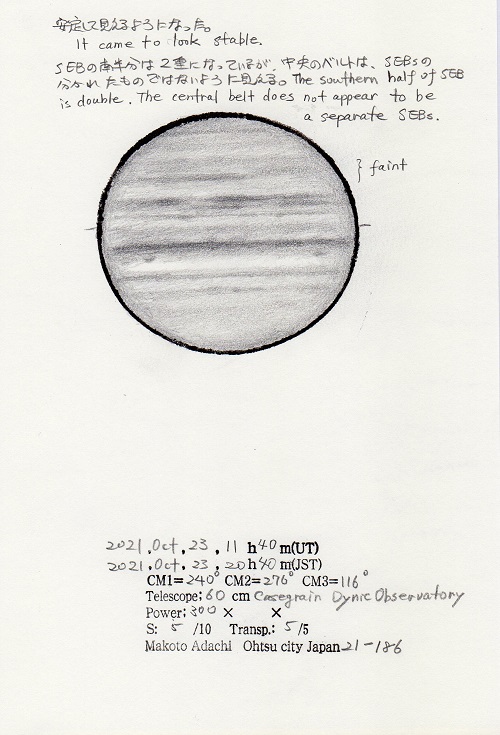 安定して見えるようになった。
It came to look stable.
SEBの南半分は2重になっているが、中央のベルトは、SEBsの
分かれたものではないように見える。The southern half of SEB
is double. The central belt does not appear to be
a separate SEBs.
} faint
2021.Oct.23, 11 h40 m(UT)
2021.Oct.23, 20h40 m(JST)
CM1=240° CM2=276° CM3=116°
Telescope; 60 cm Casegrain Dynic Observatory
Power; 300 × ×
S: 5 /10 Transp.: 5 /5
Makoto Adachi Ohtsu city Japan 21-186